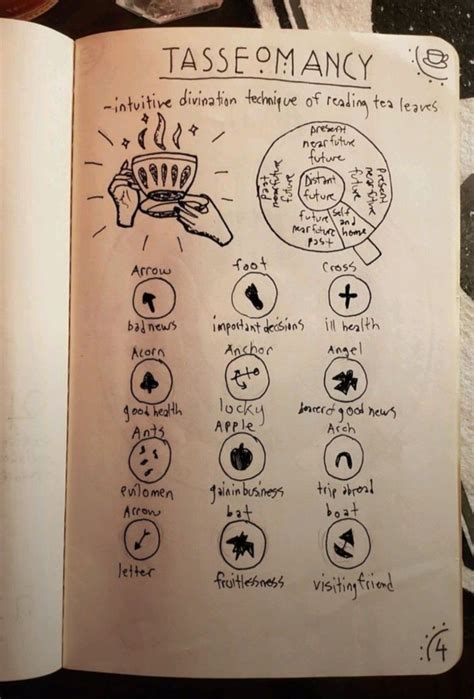 TASSEOMANCY
-intuitive divination technique of reading tea leaves
present
near future
future
present
near future
future
past
near future
future
Distant
future
future
near future
past
self
and
home
Arrow
foot
Cross
bad news
important decisions
ill health
Acorn
Anchor
Angel
good health
lucky
bearer of good news
Ants
Apple
Arch
evil omen
gain in business
trip abroad
Arrow
bat
boat
letter
fruitlessness
visiting friend
4